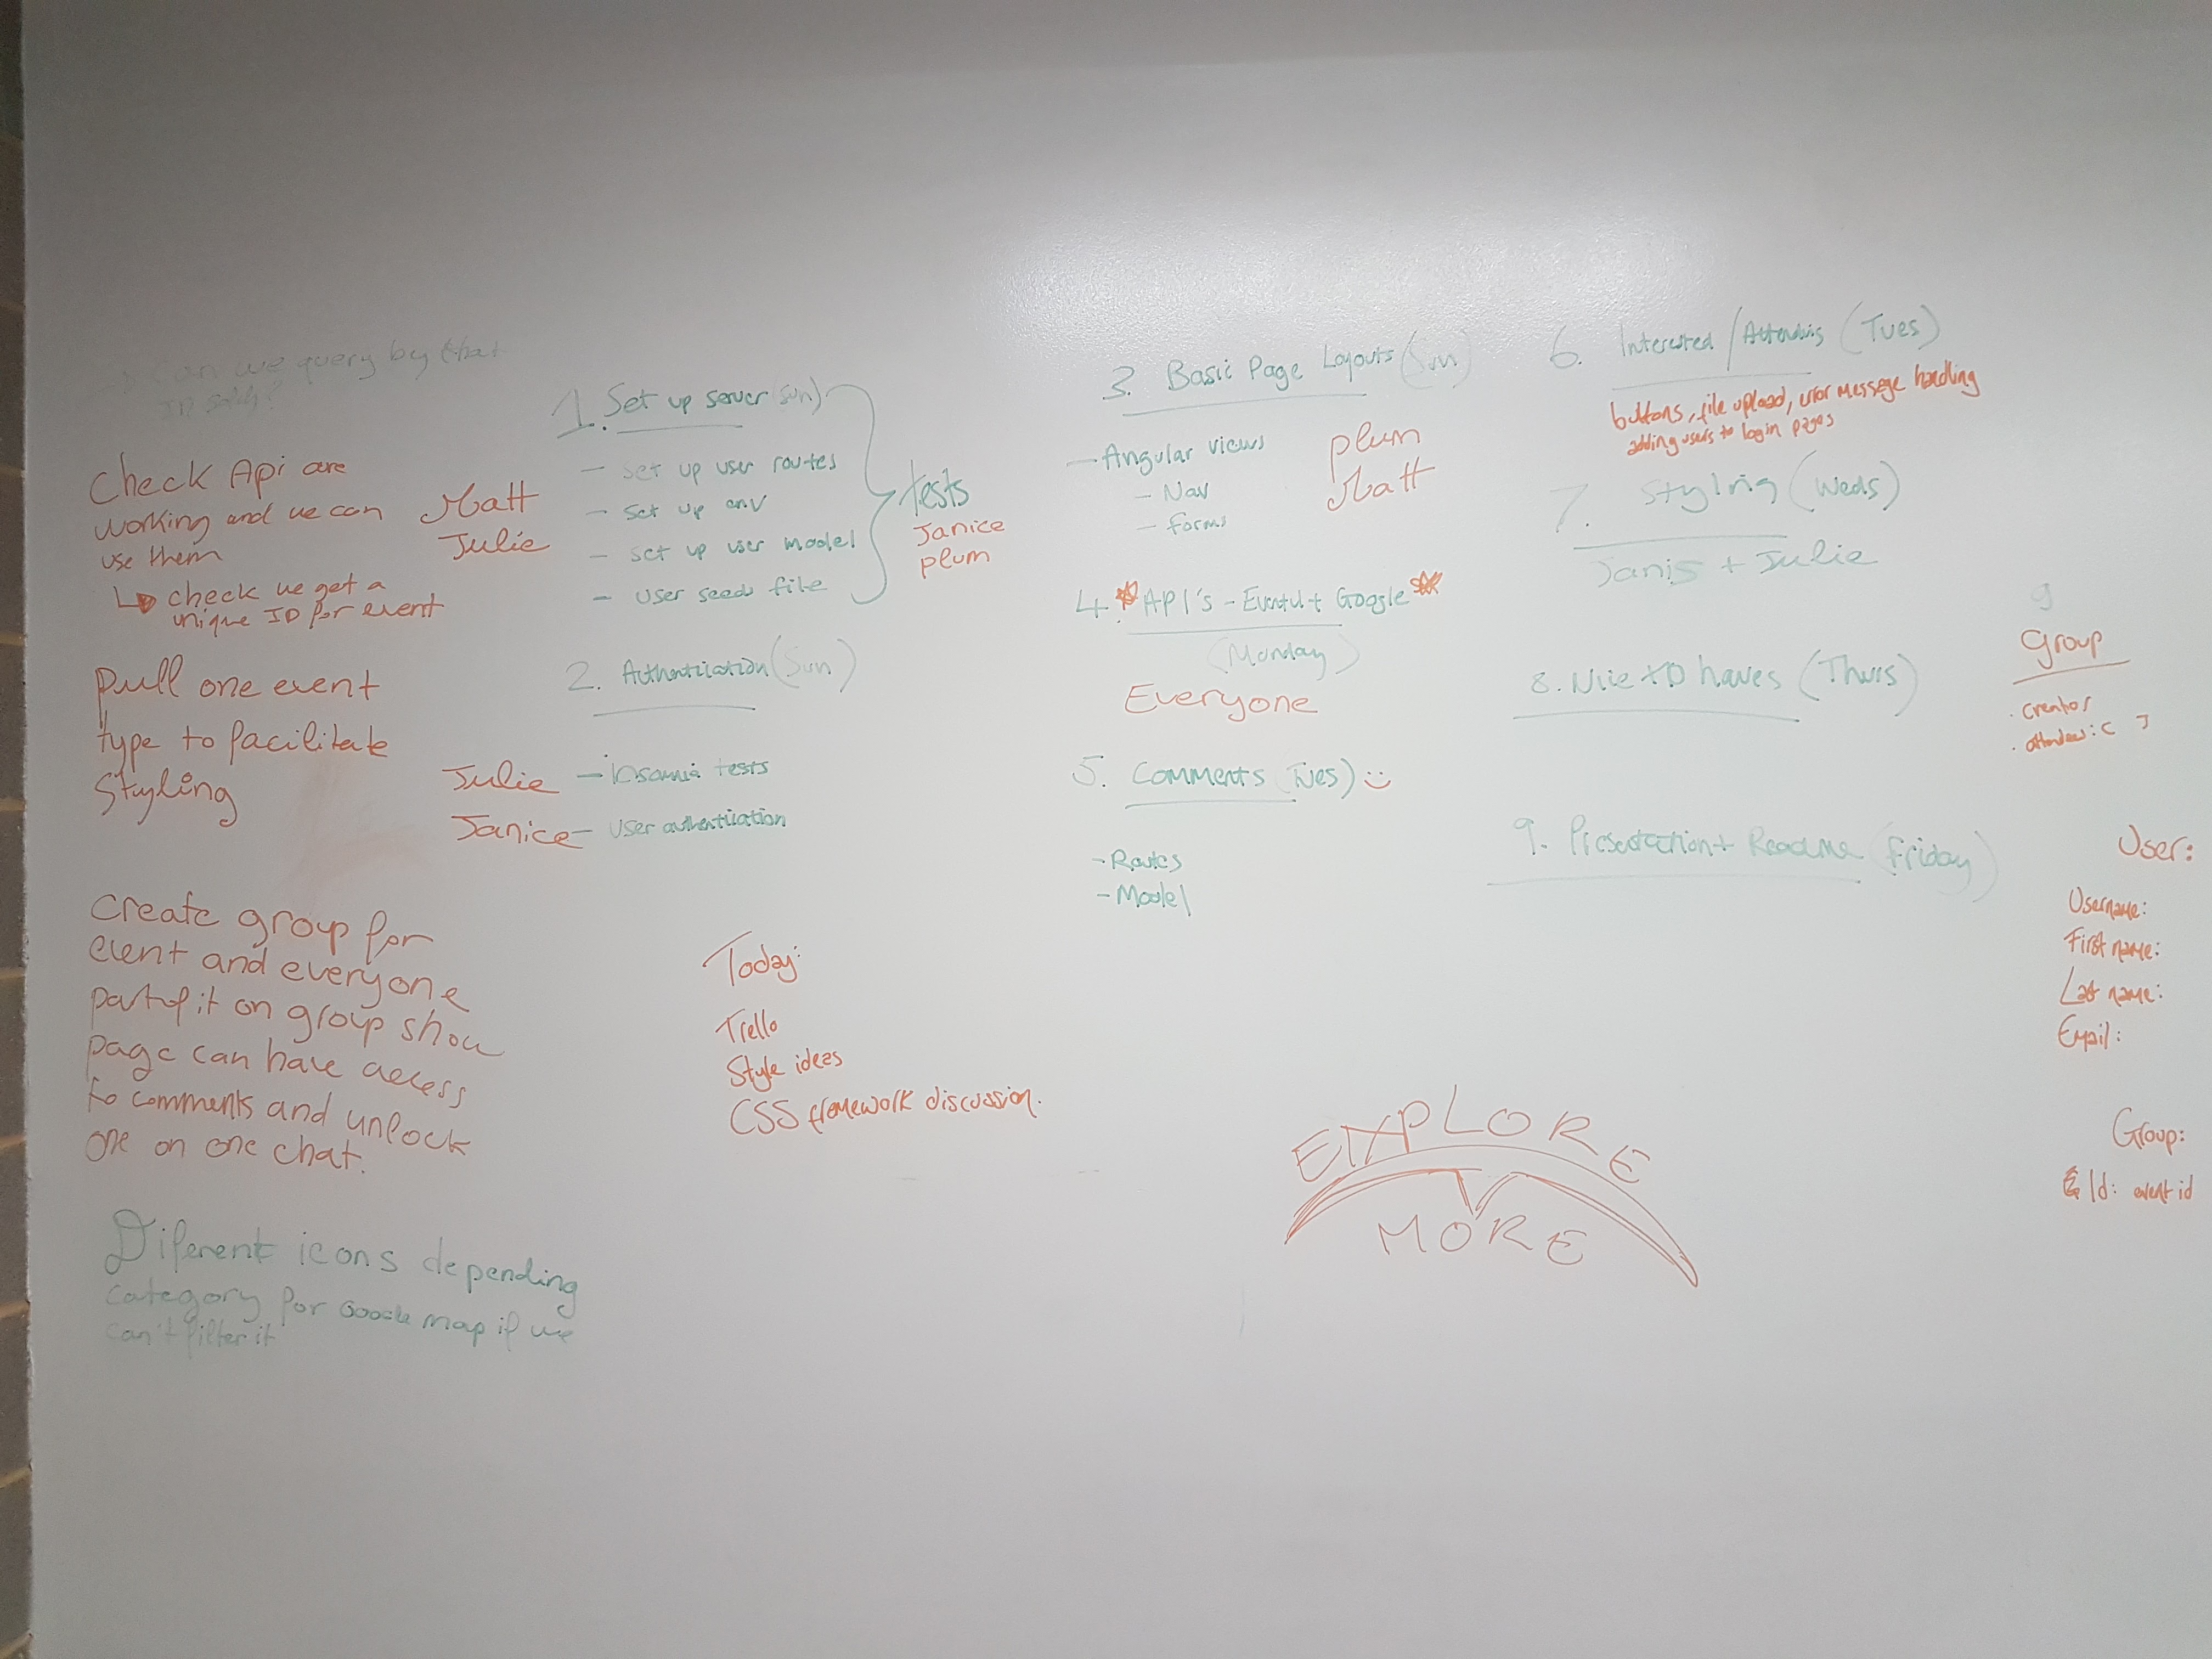 Can we query by that
ID
Check Api are
working and we can
use them
check we get a
unique ID for event
Matt
Julie
Pull one event
type to facilitate
Styling
Create group for
event and everyone
part of it on group show
page can have access
to comments and unlock
one on one chat.
Diferent icons depending
category for Google map if we
can't filter it
1. Set up server (sun)
- Set up user routes
- Set up env
- Set up user model
- User seeds file
tests
Janice
plum
2. Authentication (Sun)
Julie - Insomnia tests
Janice - User authentication
Today:
Trello
Style ideas
CSS framework discussion.
3. Basic Page Layouts (Sun)
- Angular views
- Nav
- Forms
plum
Matt
4. API's - Eventful + Google
(Monday)
Everyone
5. Comments (Tues) :)
- Routes
- Model
EXPLORE
MORE
6. Interested / Attending (Tues)
buttons, file upload, error messege handling
adding users to login pages
7. Styling (Weds)
Janis + Julie
8. Nice to haves (Thurs)
9. Presentation + Readme (Friday)
9
Group
. creator
. attendees: [ ]
User:
Username:
First name:
Last name:
Email:
Group:
Id: event id